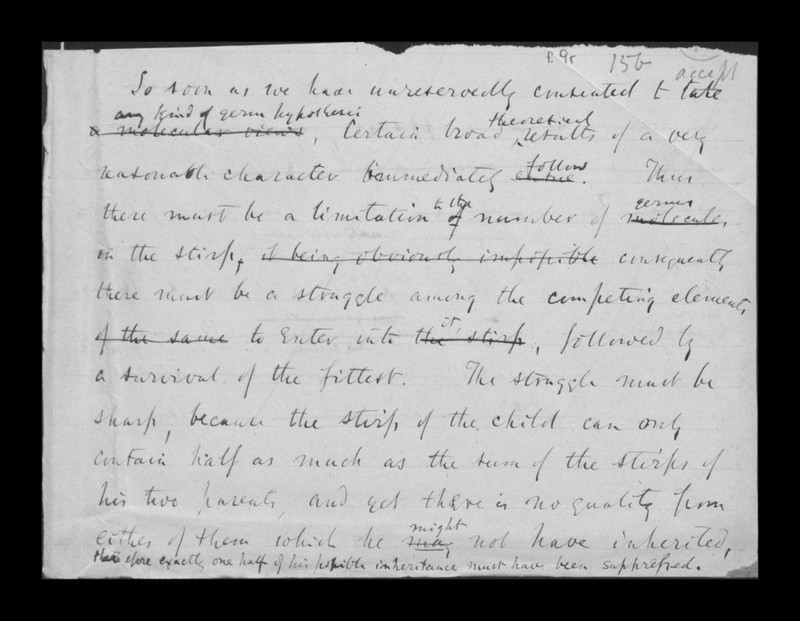 p. 9r 15b accept
So soon as we have unreservedly consented to take
any kind of germ hypothesis
a molecular views, Certain broad theoretical results of a very
reasonable character immediately ensue. follow Thus
there must be a limitation to the of number of molecules germs
in the stirp, it being obviously impossible consequently
there must be a struggle among the competing elements
of the same to enter into the stirp it, followed by
a survival of the fittest. The struggle must be
sharp, because the stirp of the child can only
contain half as much as the sum of the stirps of
his two parents, and yet there is no quality from
either of them which he may might not have inherited,
therefore exactly one half of his possible inheritance must have been suppressed.